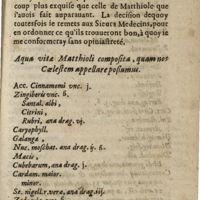 coup plus exquise que celle de Matthiole que
l'auois fait auparauant. La decision dequoy
toutesfois ie remets aux Sieurs Medecins, pour
en ordonner ce qu'ils trouueront bon, à quoy ie
me conformeray sans opiniastreté.
Aqua vitæ Matthioli composita, quam nos
Cœlestem appellare possumus.
Acc. Cinnamomi vnc. j.
Zingiberis vnc. ß.
Santal. albi,
Citrini,
Rubri, ana drag. vj.
Caryophyll.
Galangæ,
Nuc. moschat. ana drag. ij. ß.
Macis,
Cubebarum, ana drag. j.
Cardam. maior.
minor.
Se. nigell. veræ, ana drag. iij.